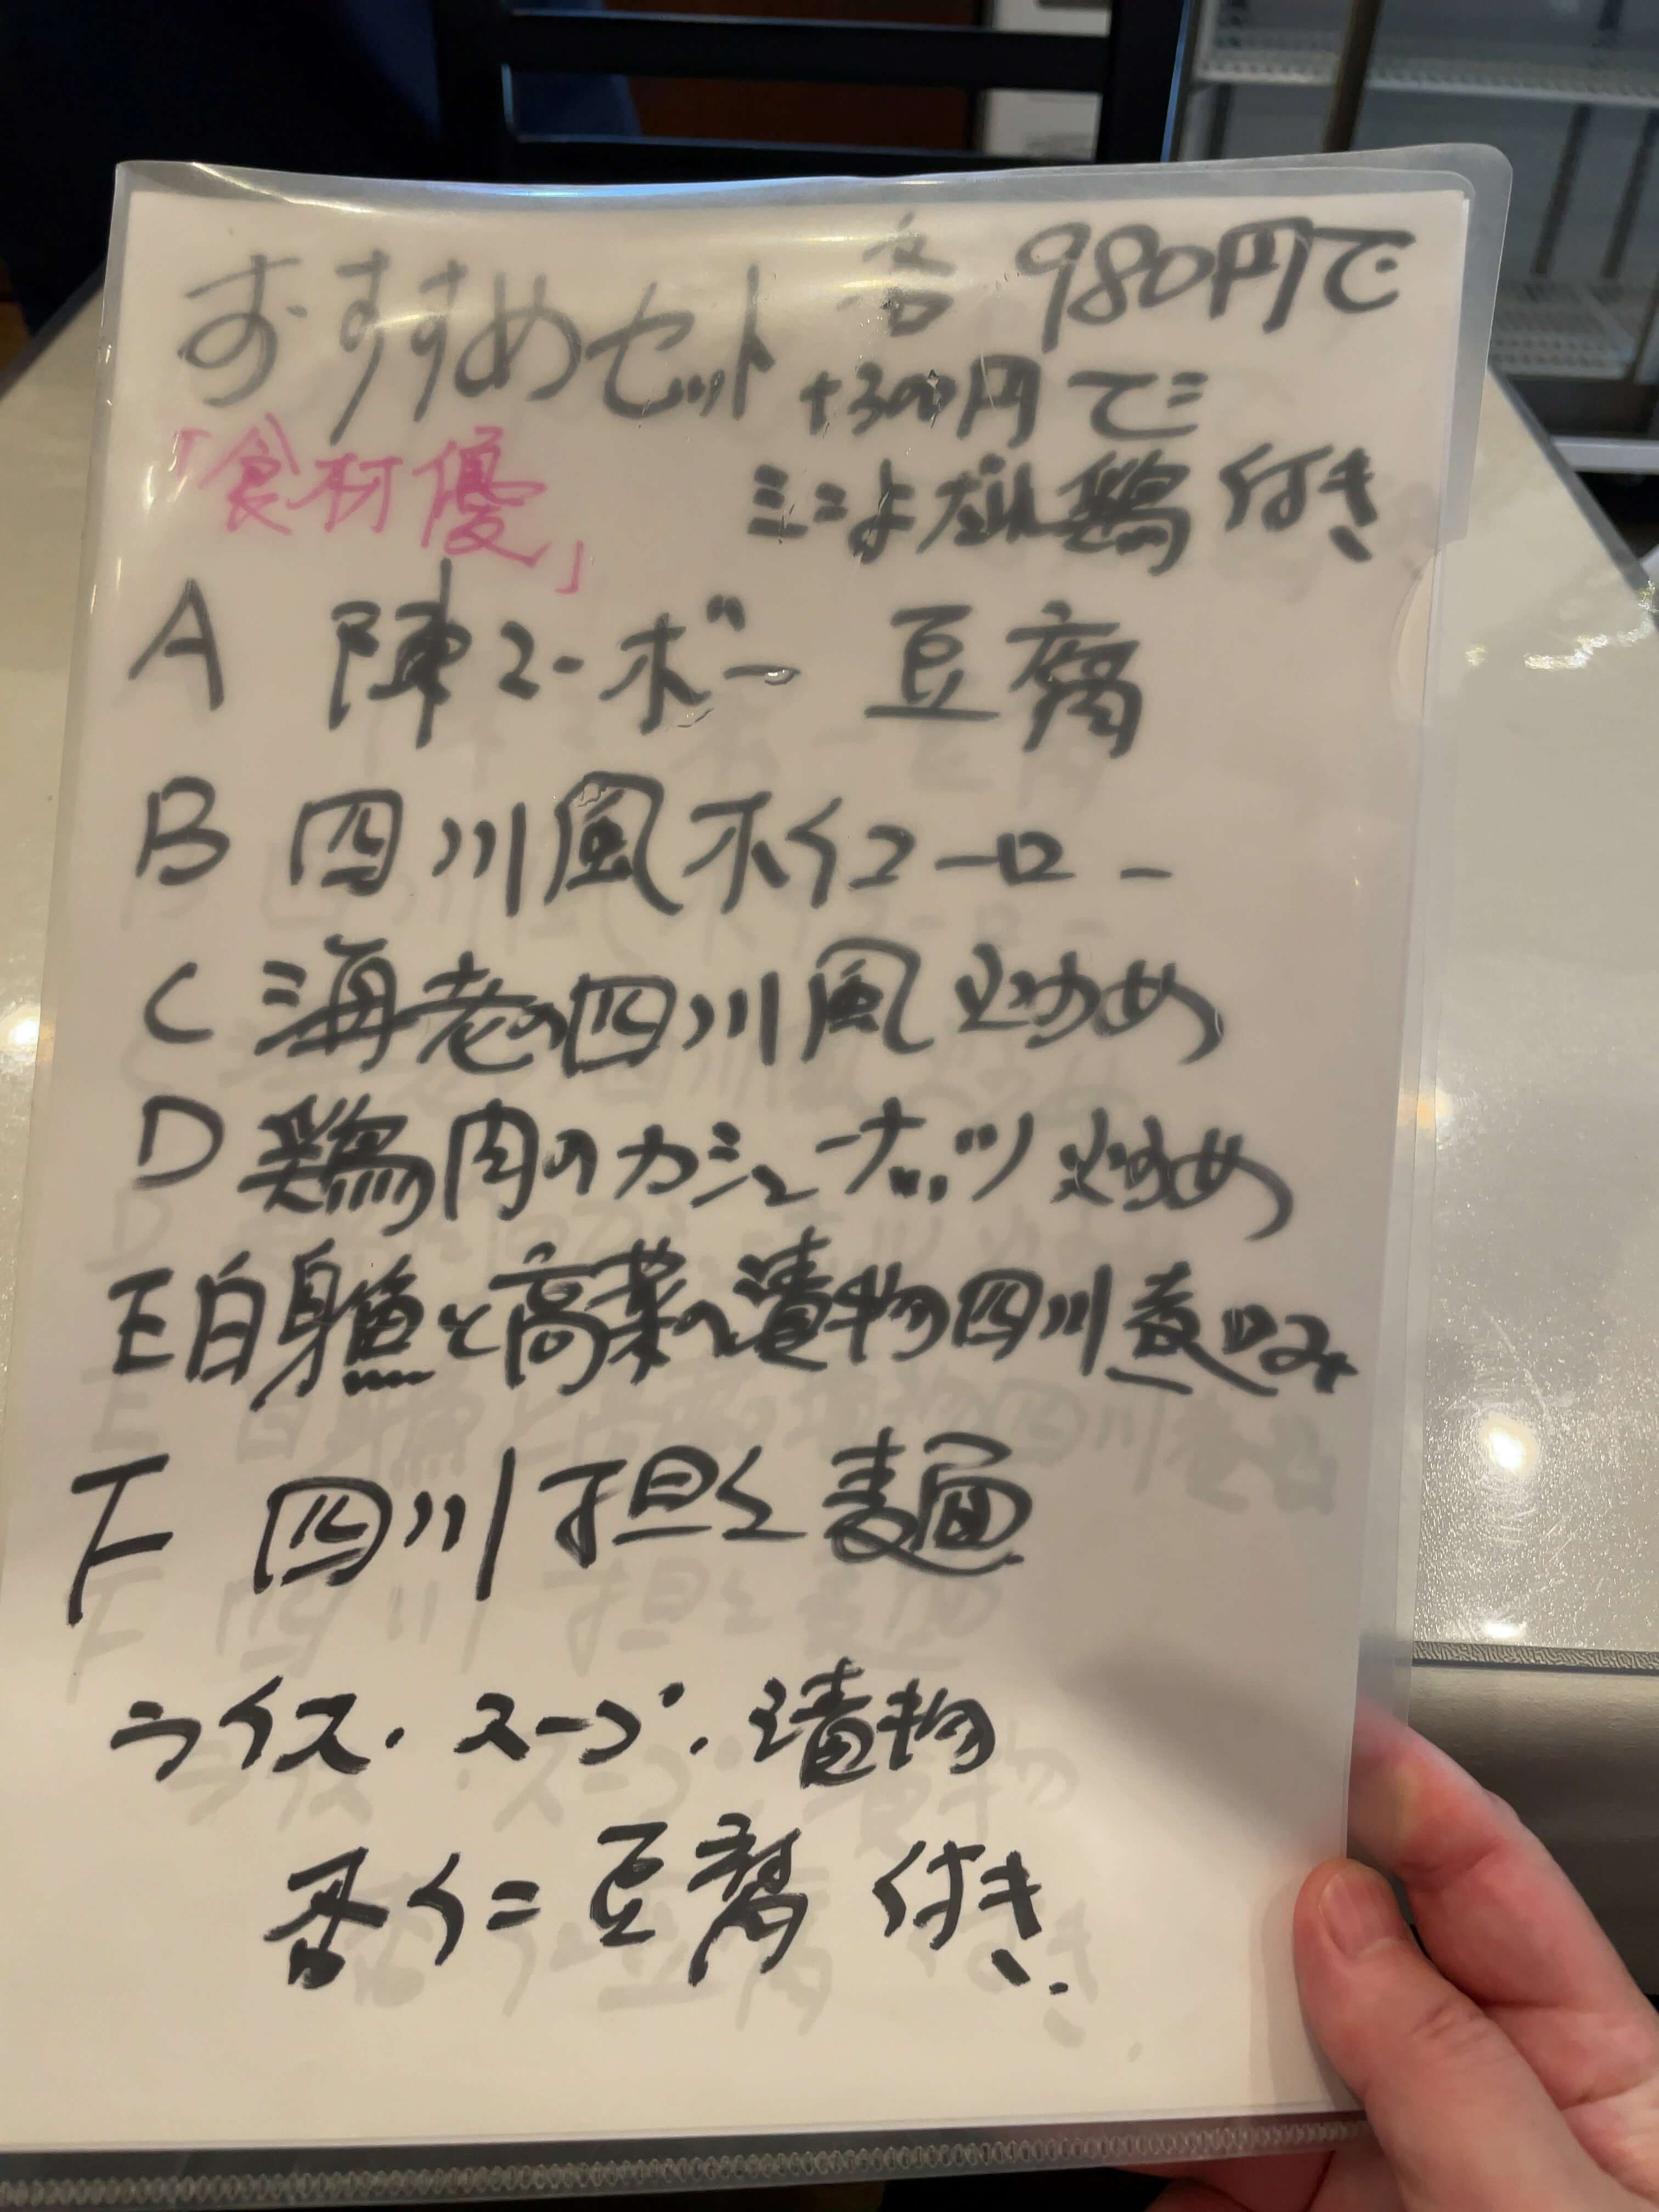 おすすめセット 各 980円で
+300円で
「食材優」 ミニよだれ鶏 付き
A 陳マーボー 豆腐
B 四川風ホイコーロー
C 海老の四川風炒め
D 鶏肉のカシューナッツ炒め
E 白身魚と高菜の漬物四川煮込み
F 四川担々麺
ライス・スープ・漬物
杏仁豆腐 付き.